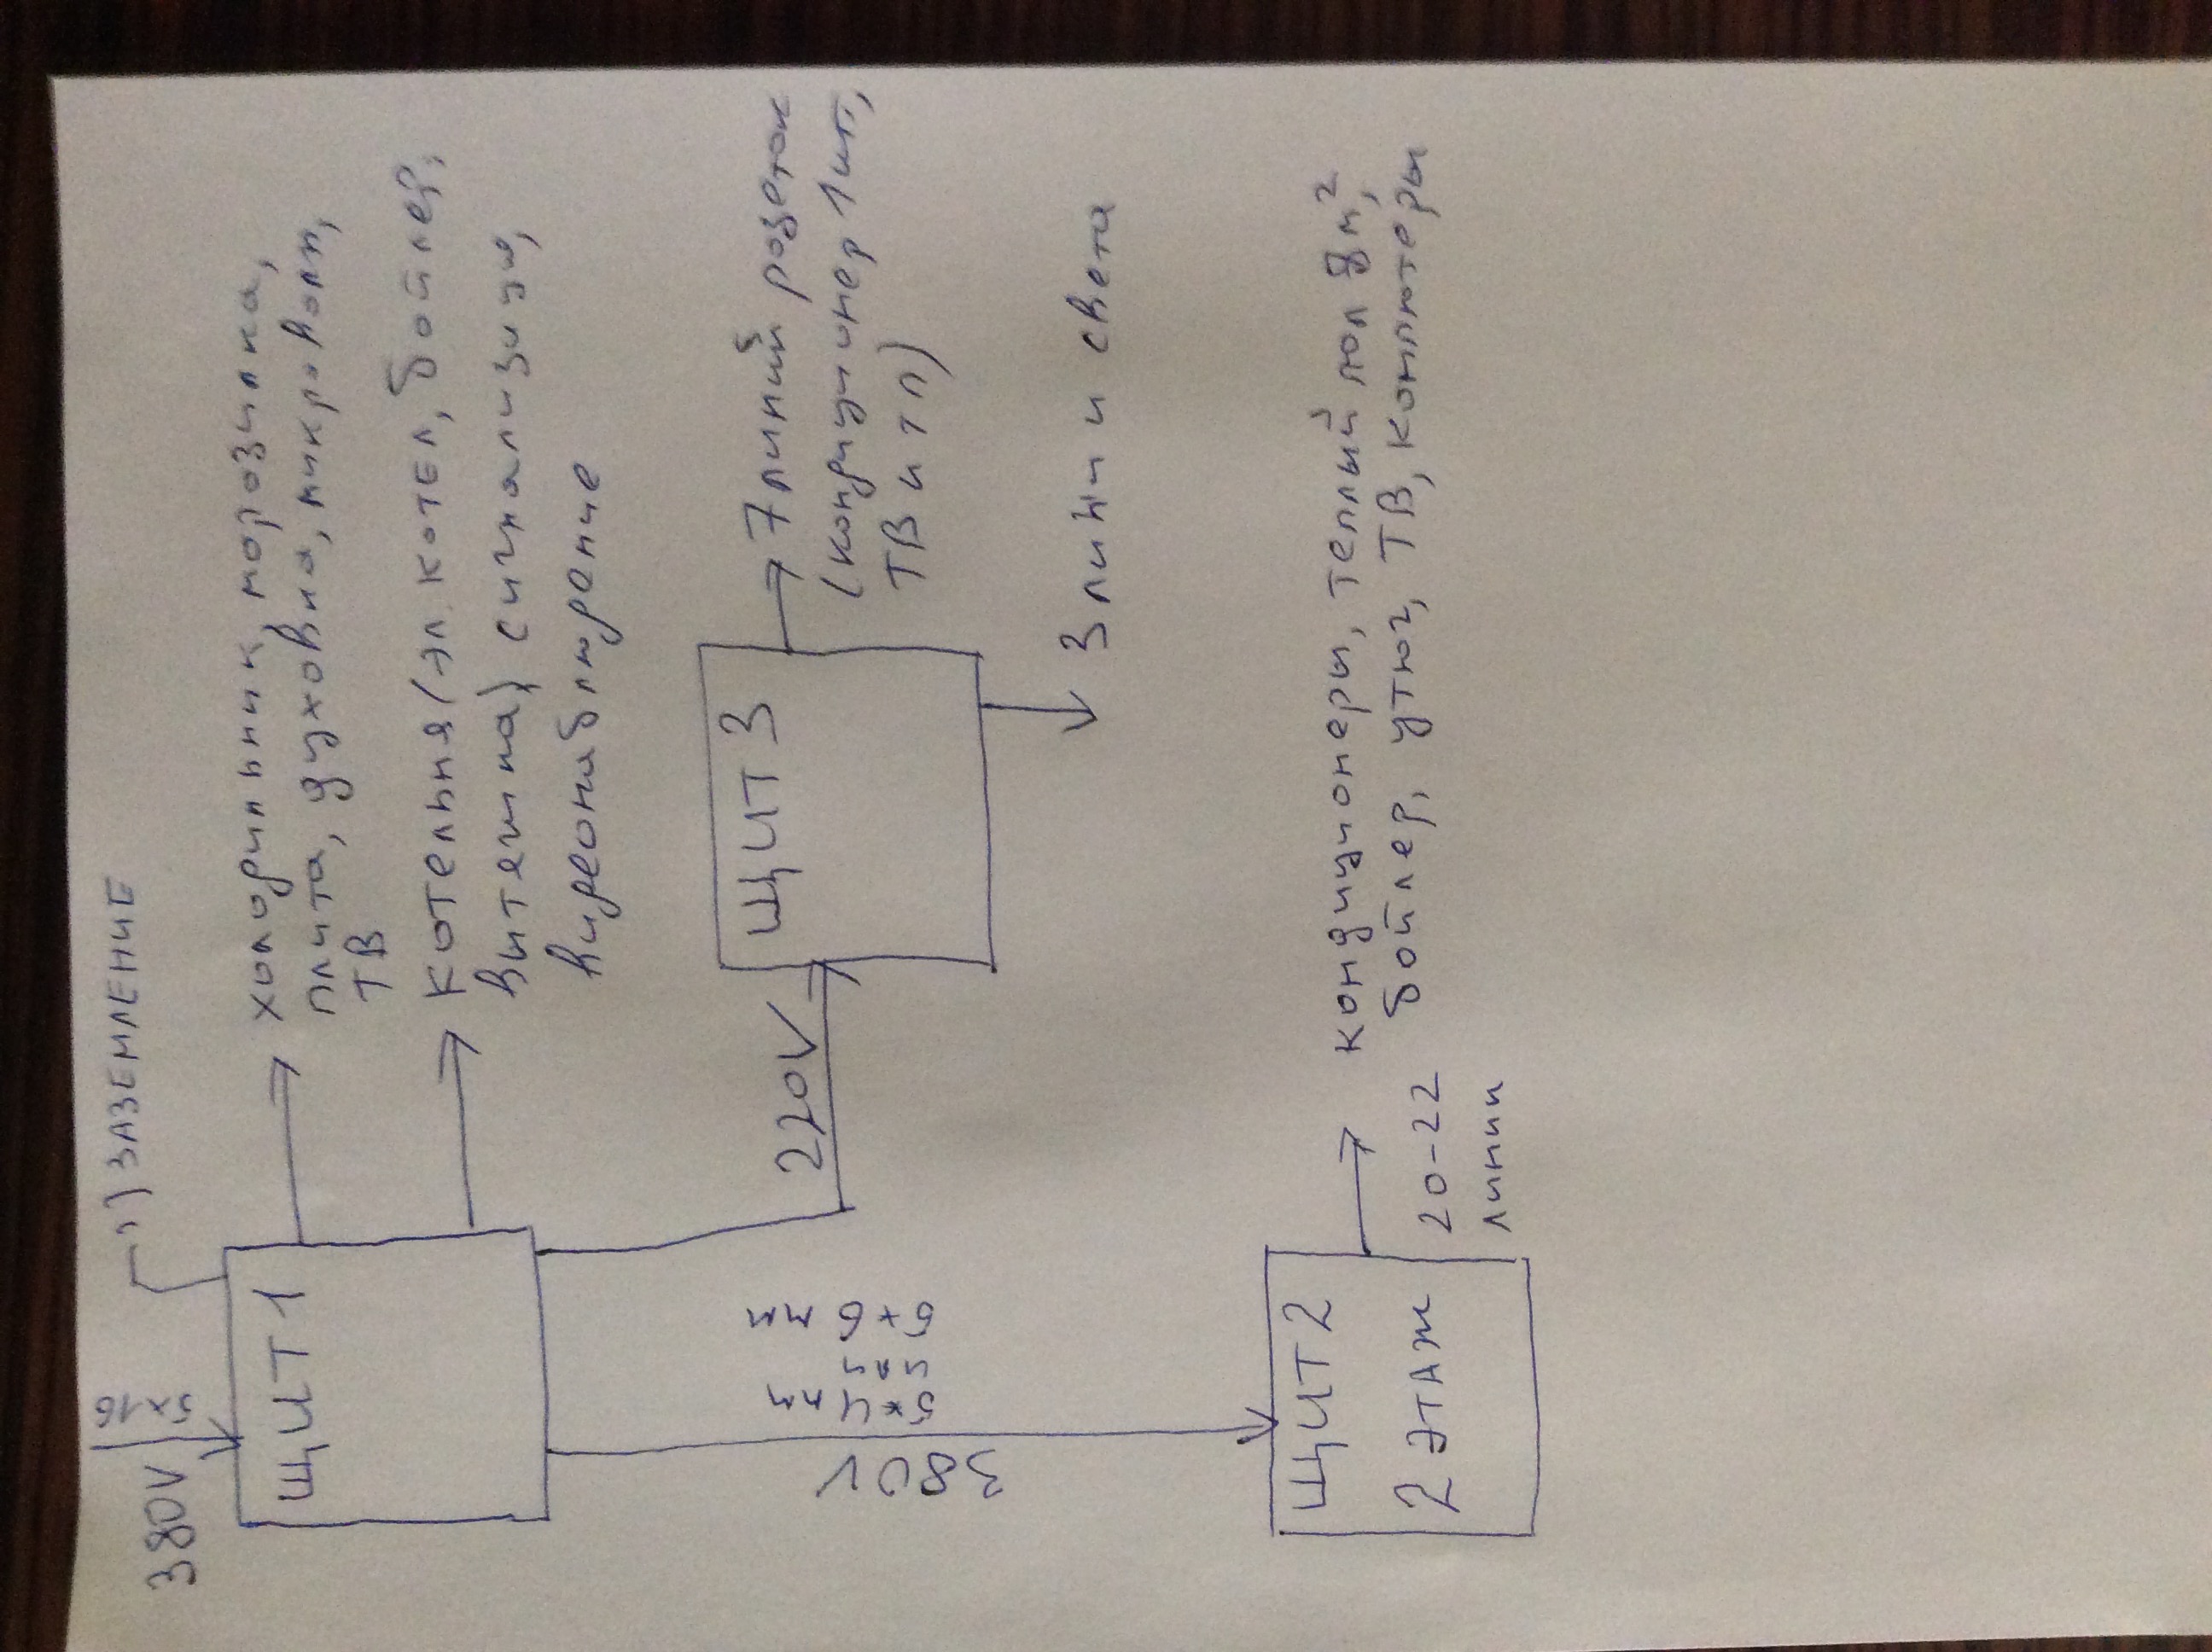 1) ЗАЗЕМЛЕНИЕ
380V
5x16
ЩИТ 1
холодильник, морозилка,
плита, духовка, микроволн,
ТВ
Котельня (эл. котел, бойлер,
витяжка) сигнализация,
видеонаблюдение
220V
ЩИТ 3
7 линий розеток
(кондиционер 1шт,
ТВ и т п)
3 линии света
380V
5x4 мм
5x6 мм
ЩИТ 2
2 ЭТАЖ
20-22
линии
кондиционеры, теплый пол 8м²,
бойлер, утюг, ТВ, компютеры